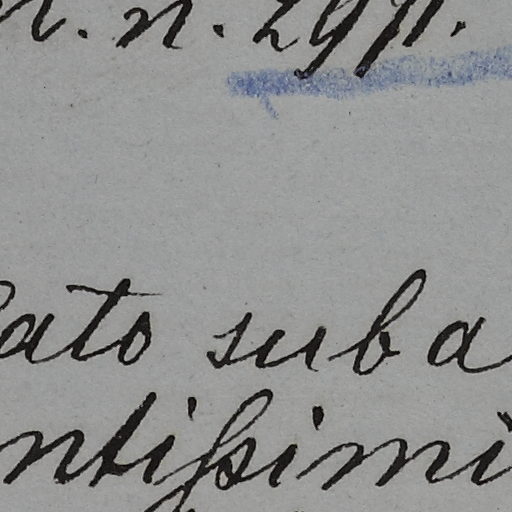 n. n. 2911.
ato sub a
ntißimi